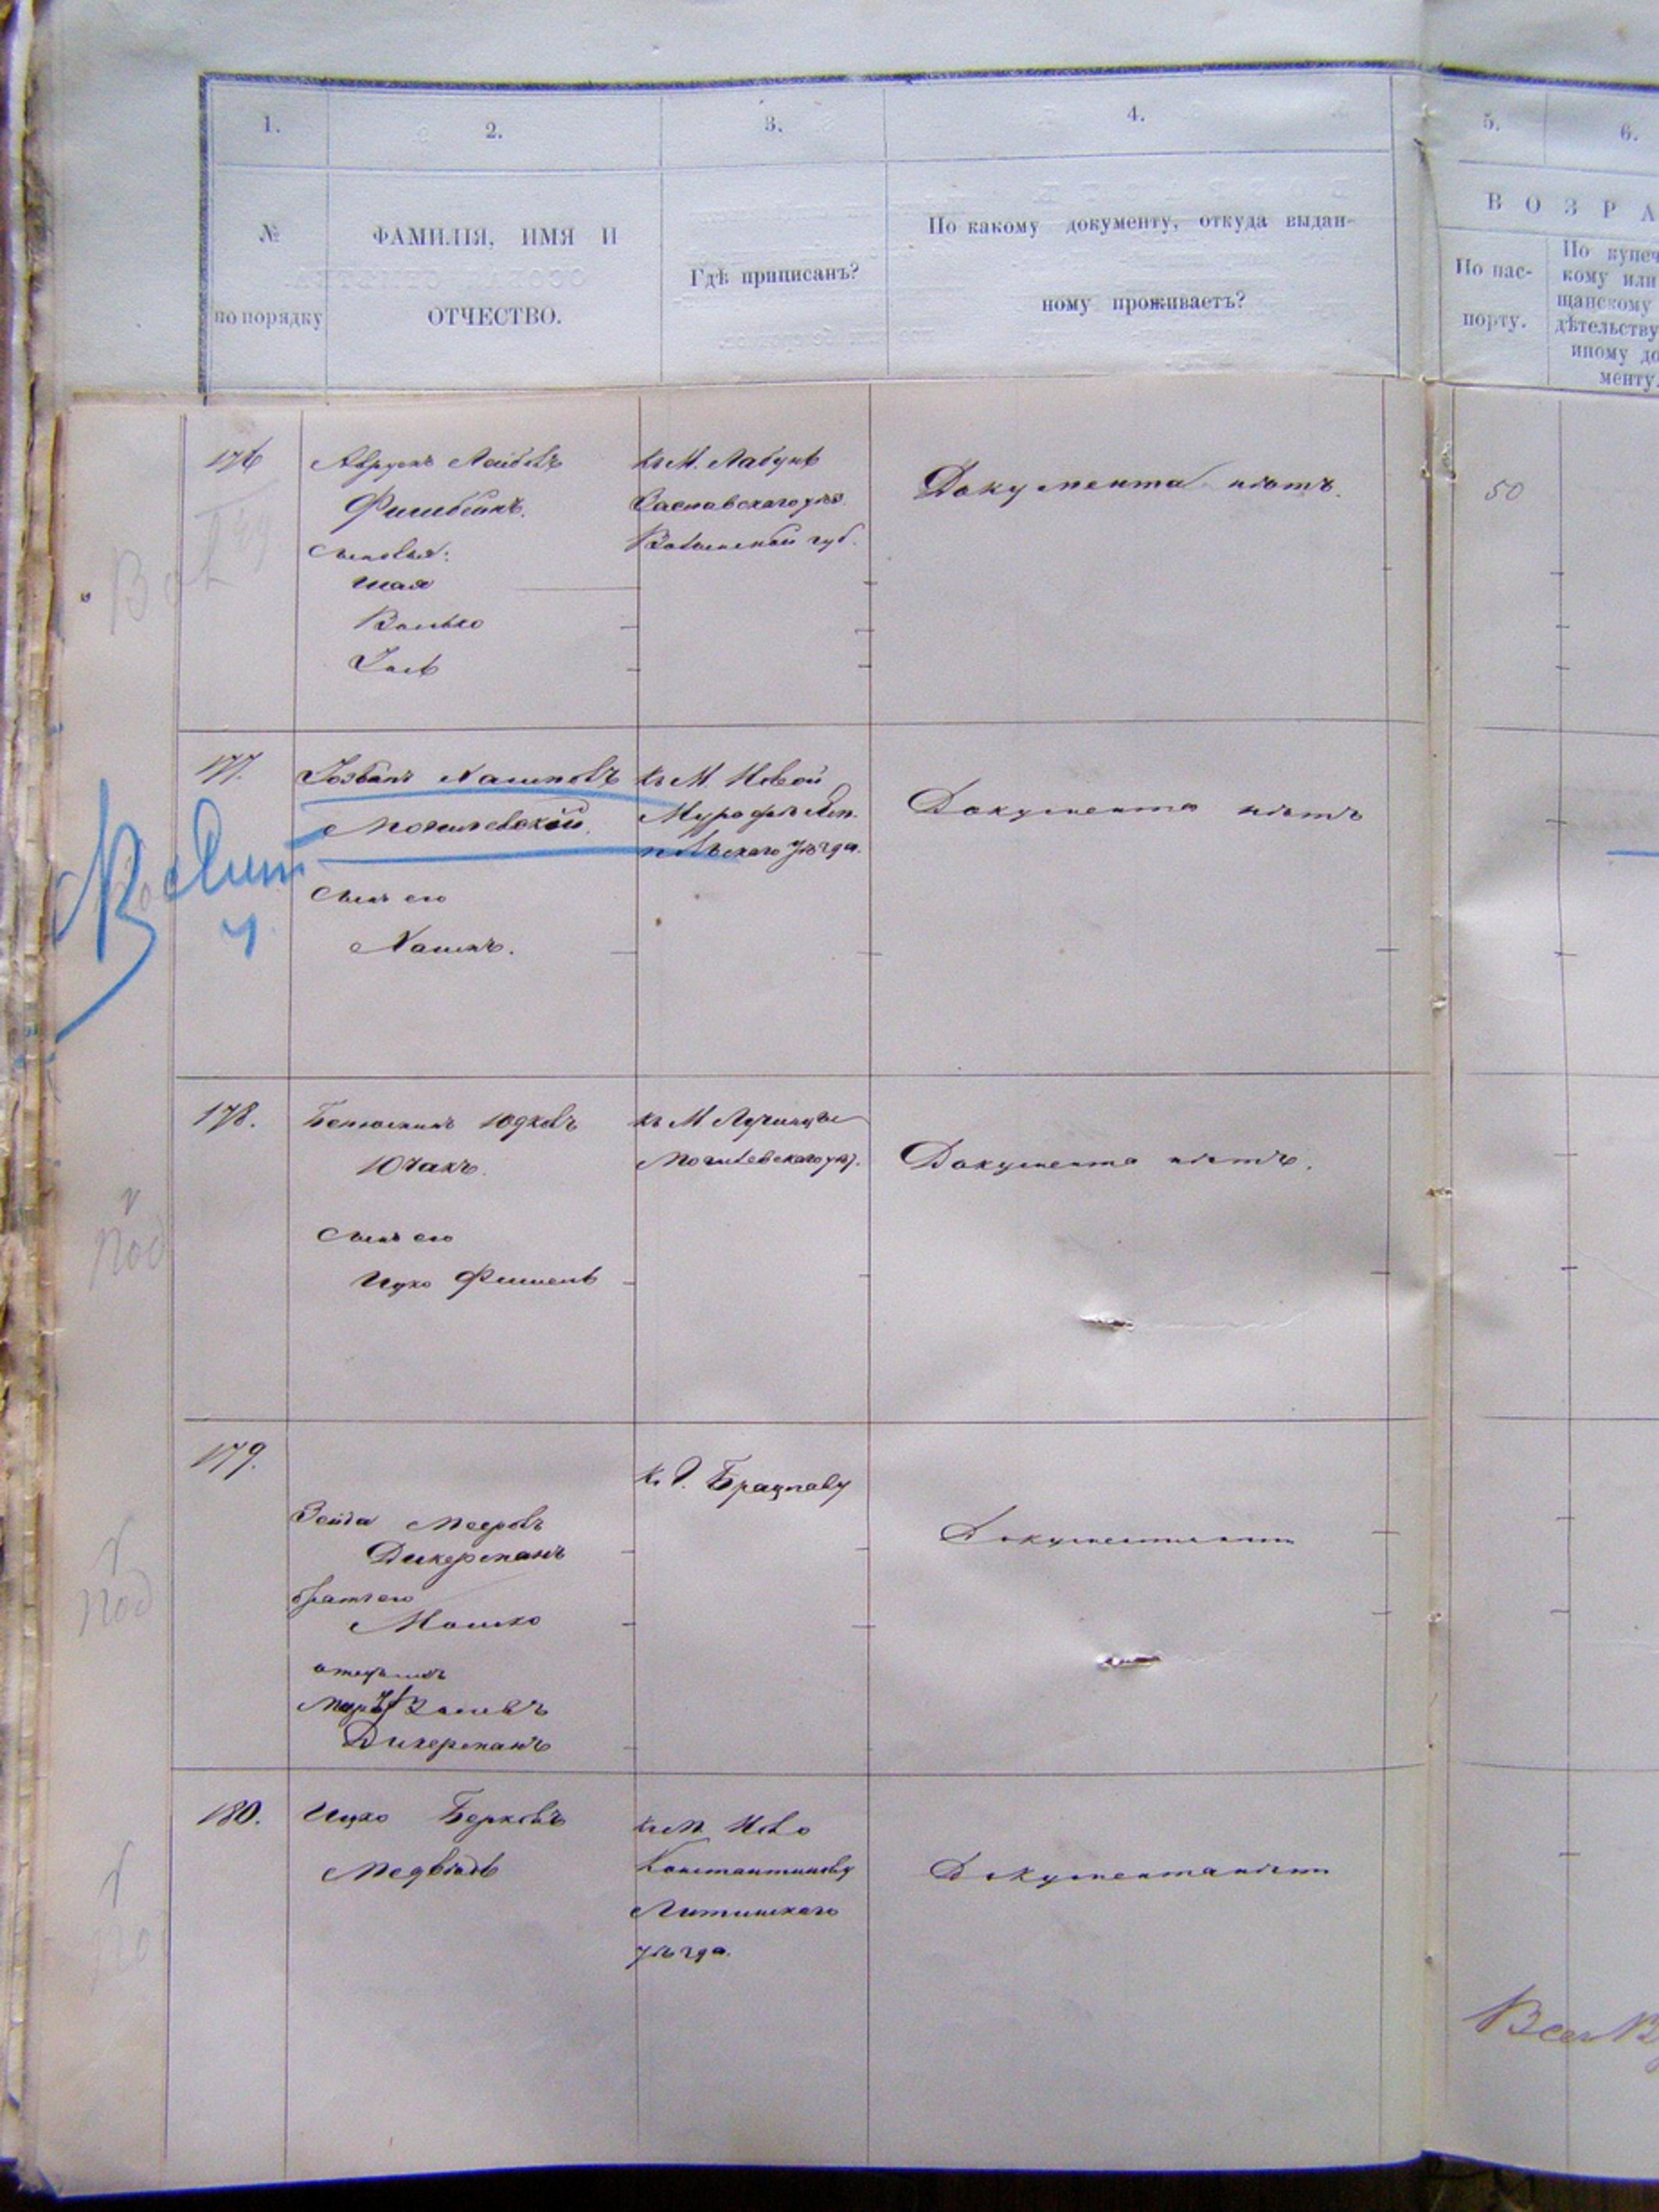 1.
2.
3.
4.
5.
6.
№
по порядку
ФАМИЛІЯ, ИМЯ И
ОТЧЕСТВО.
Гдѣ приписанъ?
По какому документу, откуда выдан-
ному проживаетъ?
ВОЗРА
По пас-
порту.
По купеч
кому или
щанскому
дѣтельству
иному до
менту.
176
Аврумъ Лейбовъ
Фишбейнъ.
Сыновья:
Шая
Волько
Іось
Къ М. Лабунь
Заславскаго уѣз.
Волынской губ.
Документа нѣтъ.
50
177.
Хаимовъ
Могилевской
Сынъ его
Хаимъ.
Къ М. Новой
Мурафѣ Ям
польскаго Уѣзда.
Документа нѣтъ
178.
Беньоминъ Юдковъ
Сынъ его
Ицко Фишель
Къ М Лучинцы
Могилевскаго уѣз.
Документа нѣтъ.
179.
Зейда Мееровъ
Дикерманъ
братъ его
Мошко
отецъ ихъ
Дикерманъ
Къ Г. Брацлаву
Документа нѣтъ
180.
Ицко Берковъ
Медвѣдь
Къ М. Ново
Константинову
Литинскаго
уѣзда.
Документа нѣтъ
под
под